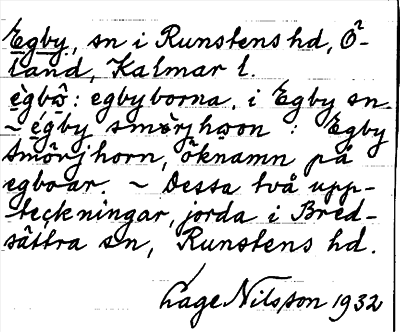 Egby, sn i Runstens hd, Ö-
land, Kalmar l.
ègbō̂: egbyborna, i Egby sn
~ ég̀by smö̀rjhɷon : Egby
smörjhorn, öknamn på
egboar. ~ Dessa två upp-
teckningar, jorda i Bred-
sättra sn, Runstens hd.
Lage Nilsson 1932